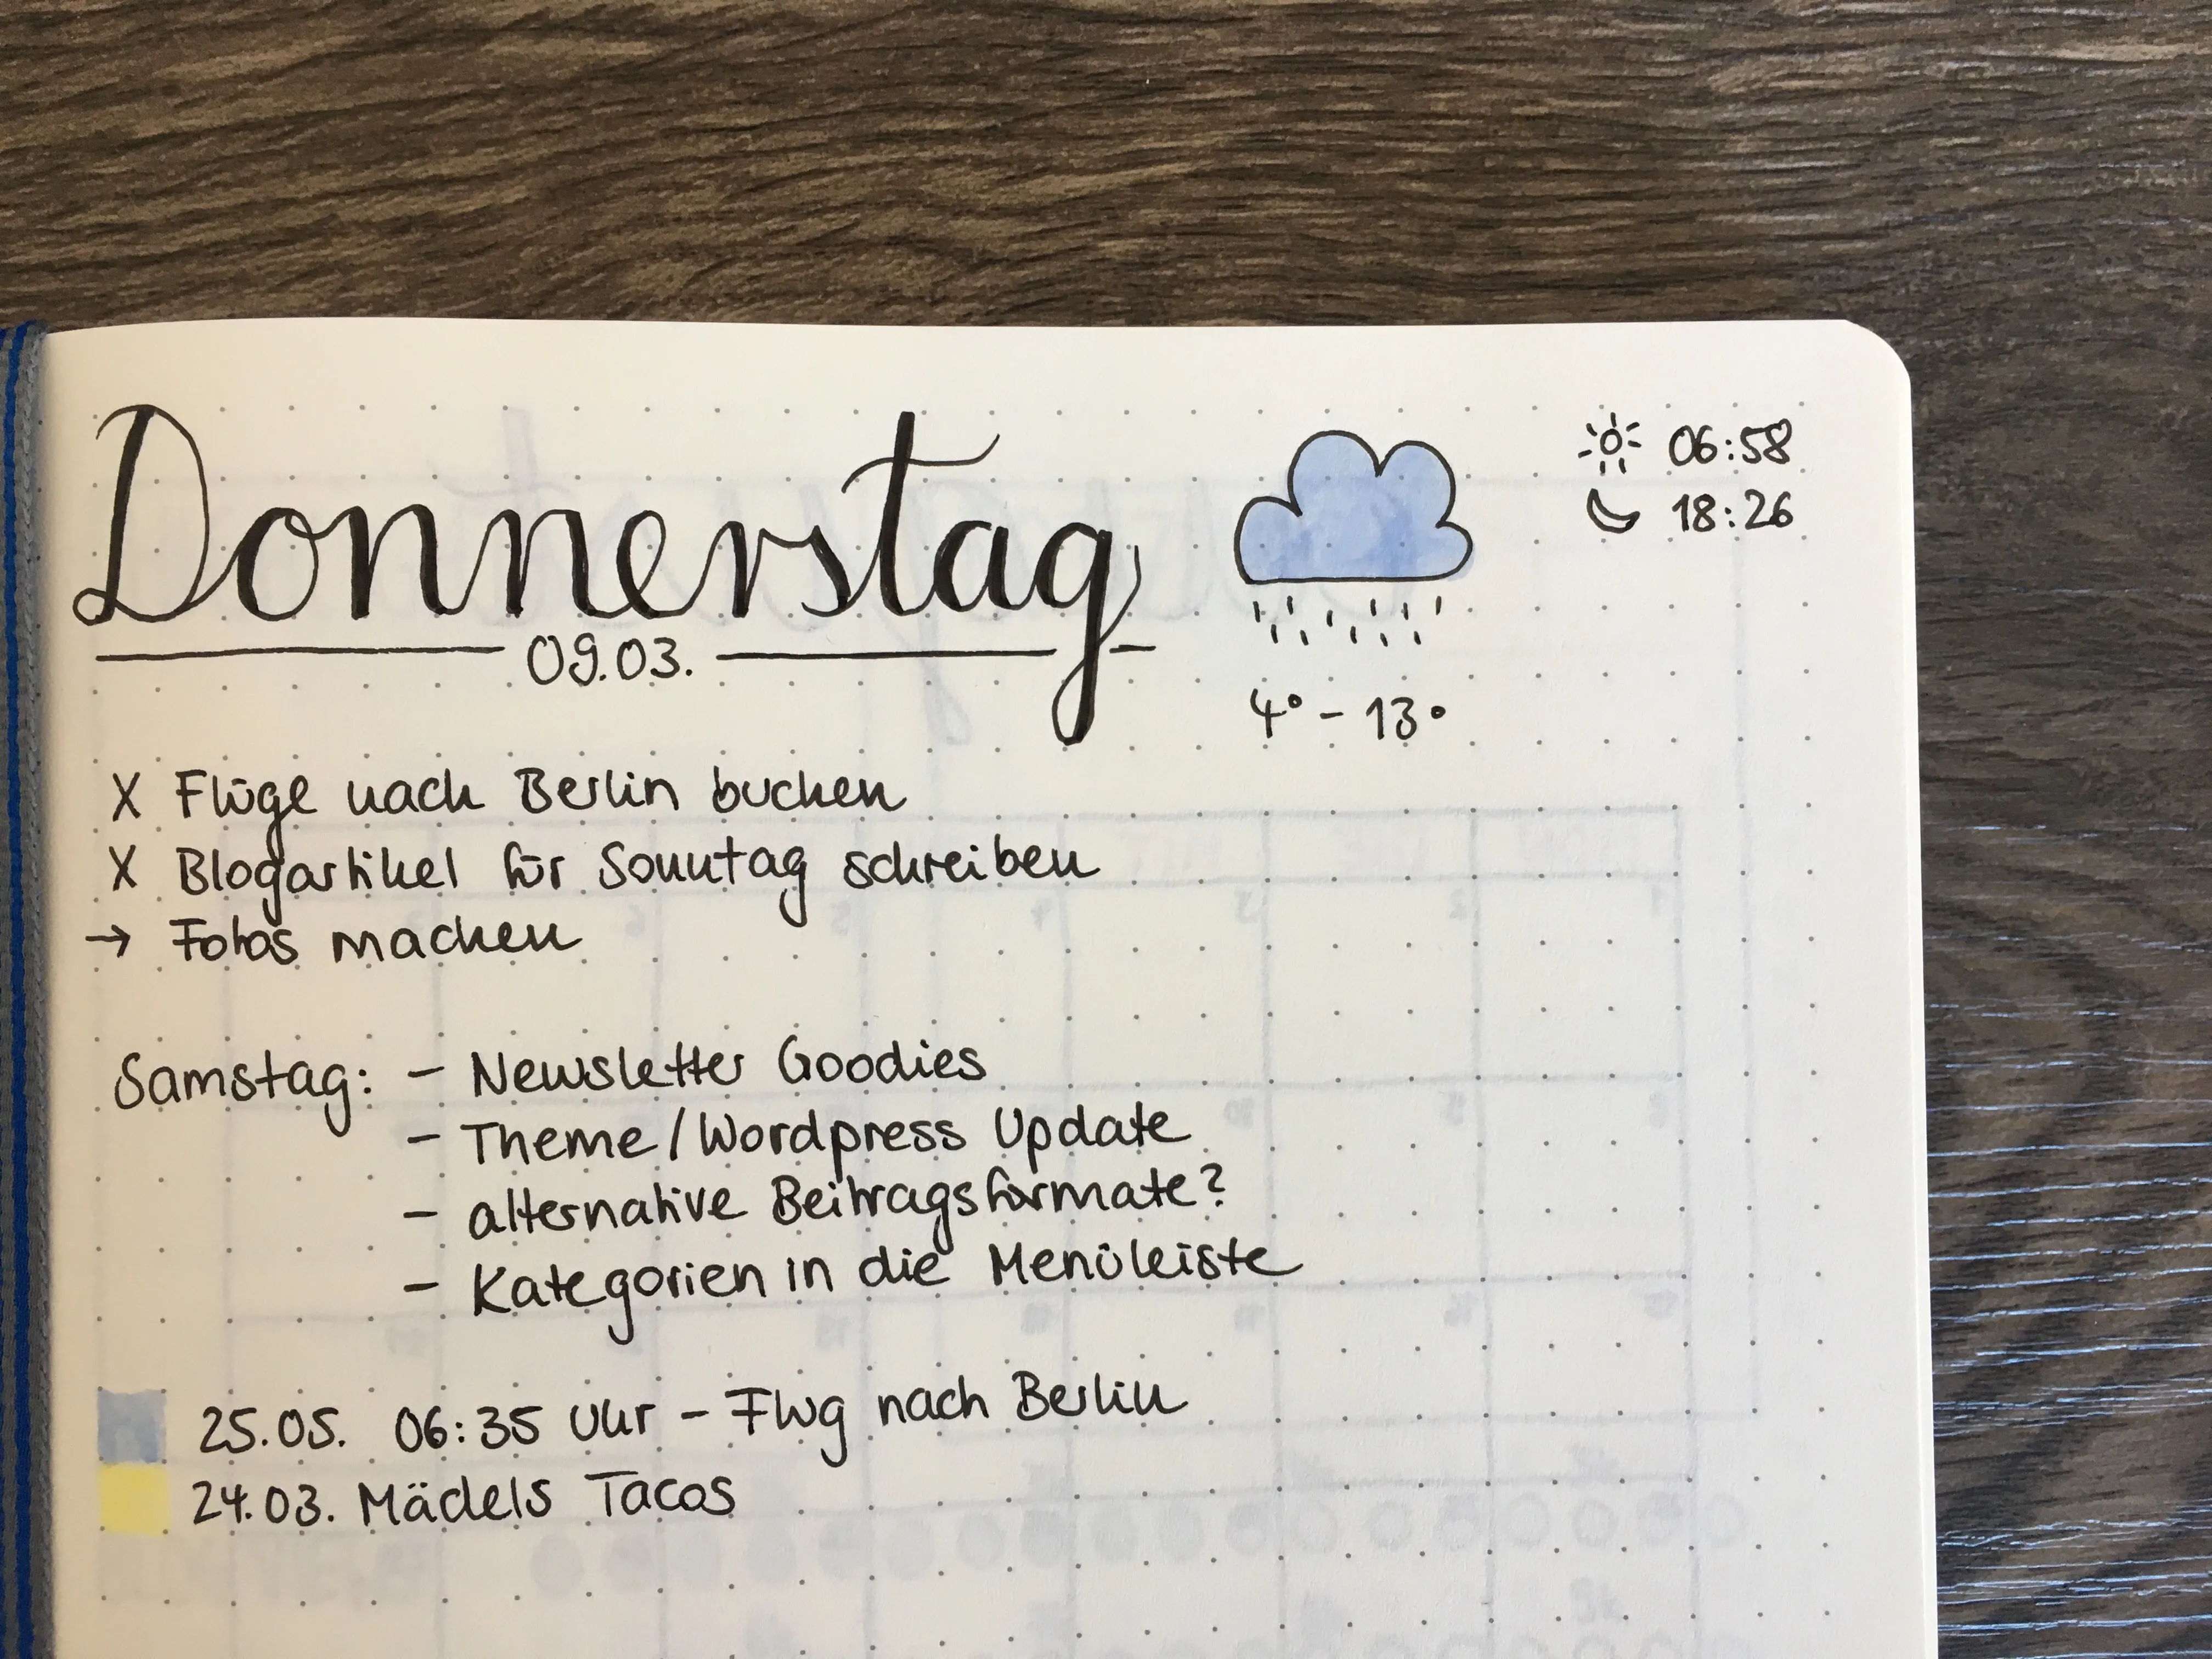 Donnerstag
09.03.
4° - 13°
06:58
18:26
X Flüge nach Berlin buchen
X Blogartikel für Sonntag schreiben
→ Fotos machen
Samstag: - Newsletter Goodies
- Theme/Wordpress Update
- alternative Beitragsformate?
- Kategorien in die Menüleiste
25.05. 06:35 Uhr - Flug nach Berlin
24.03. Mädels Tacos